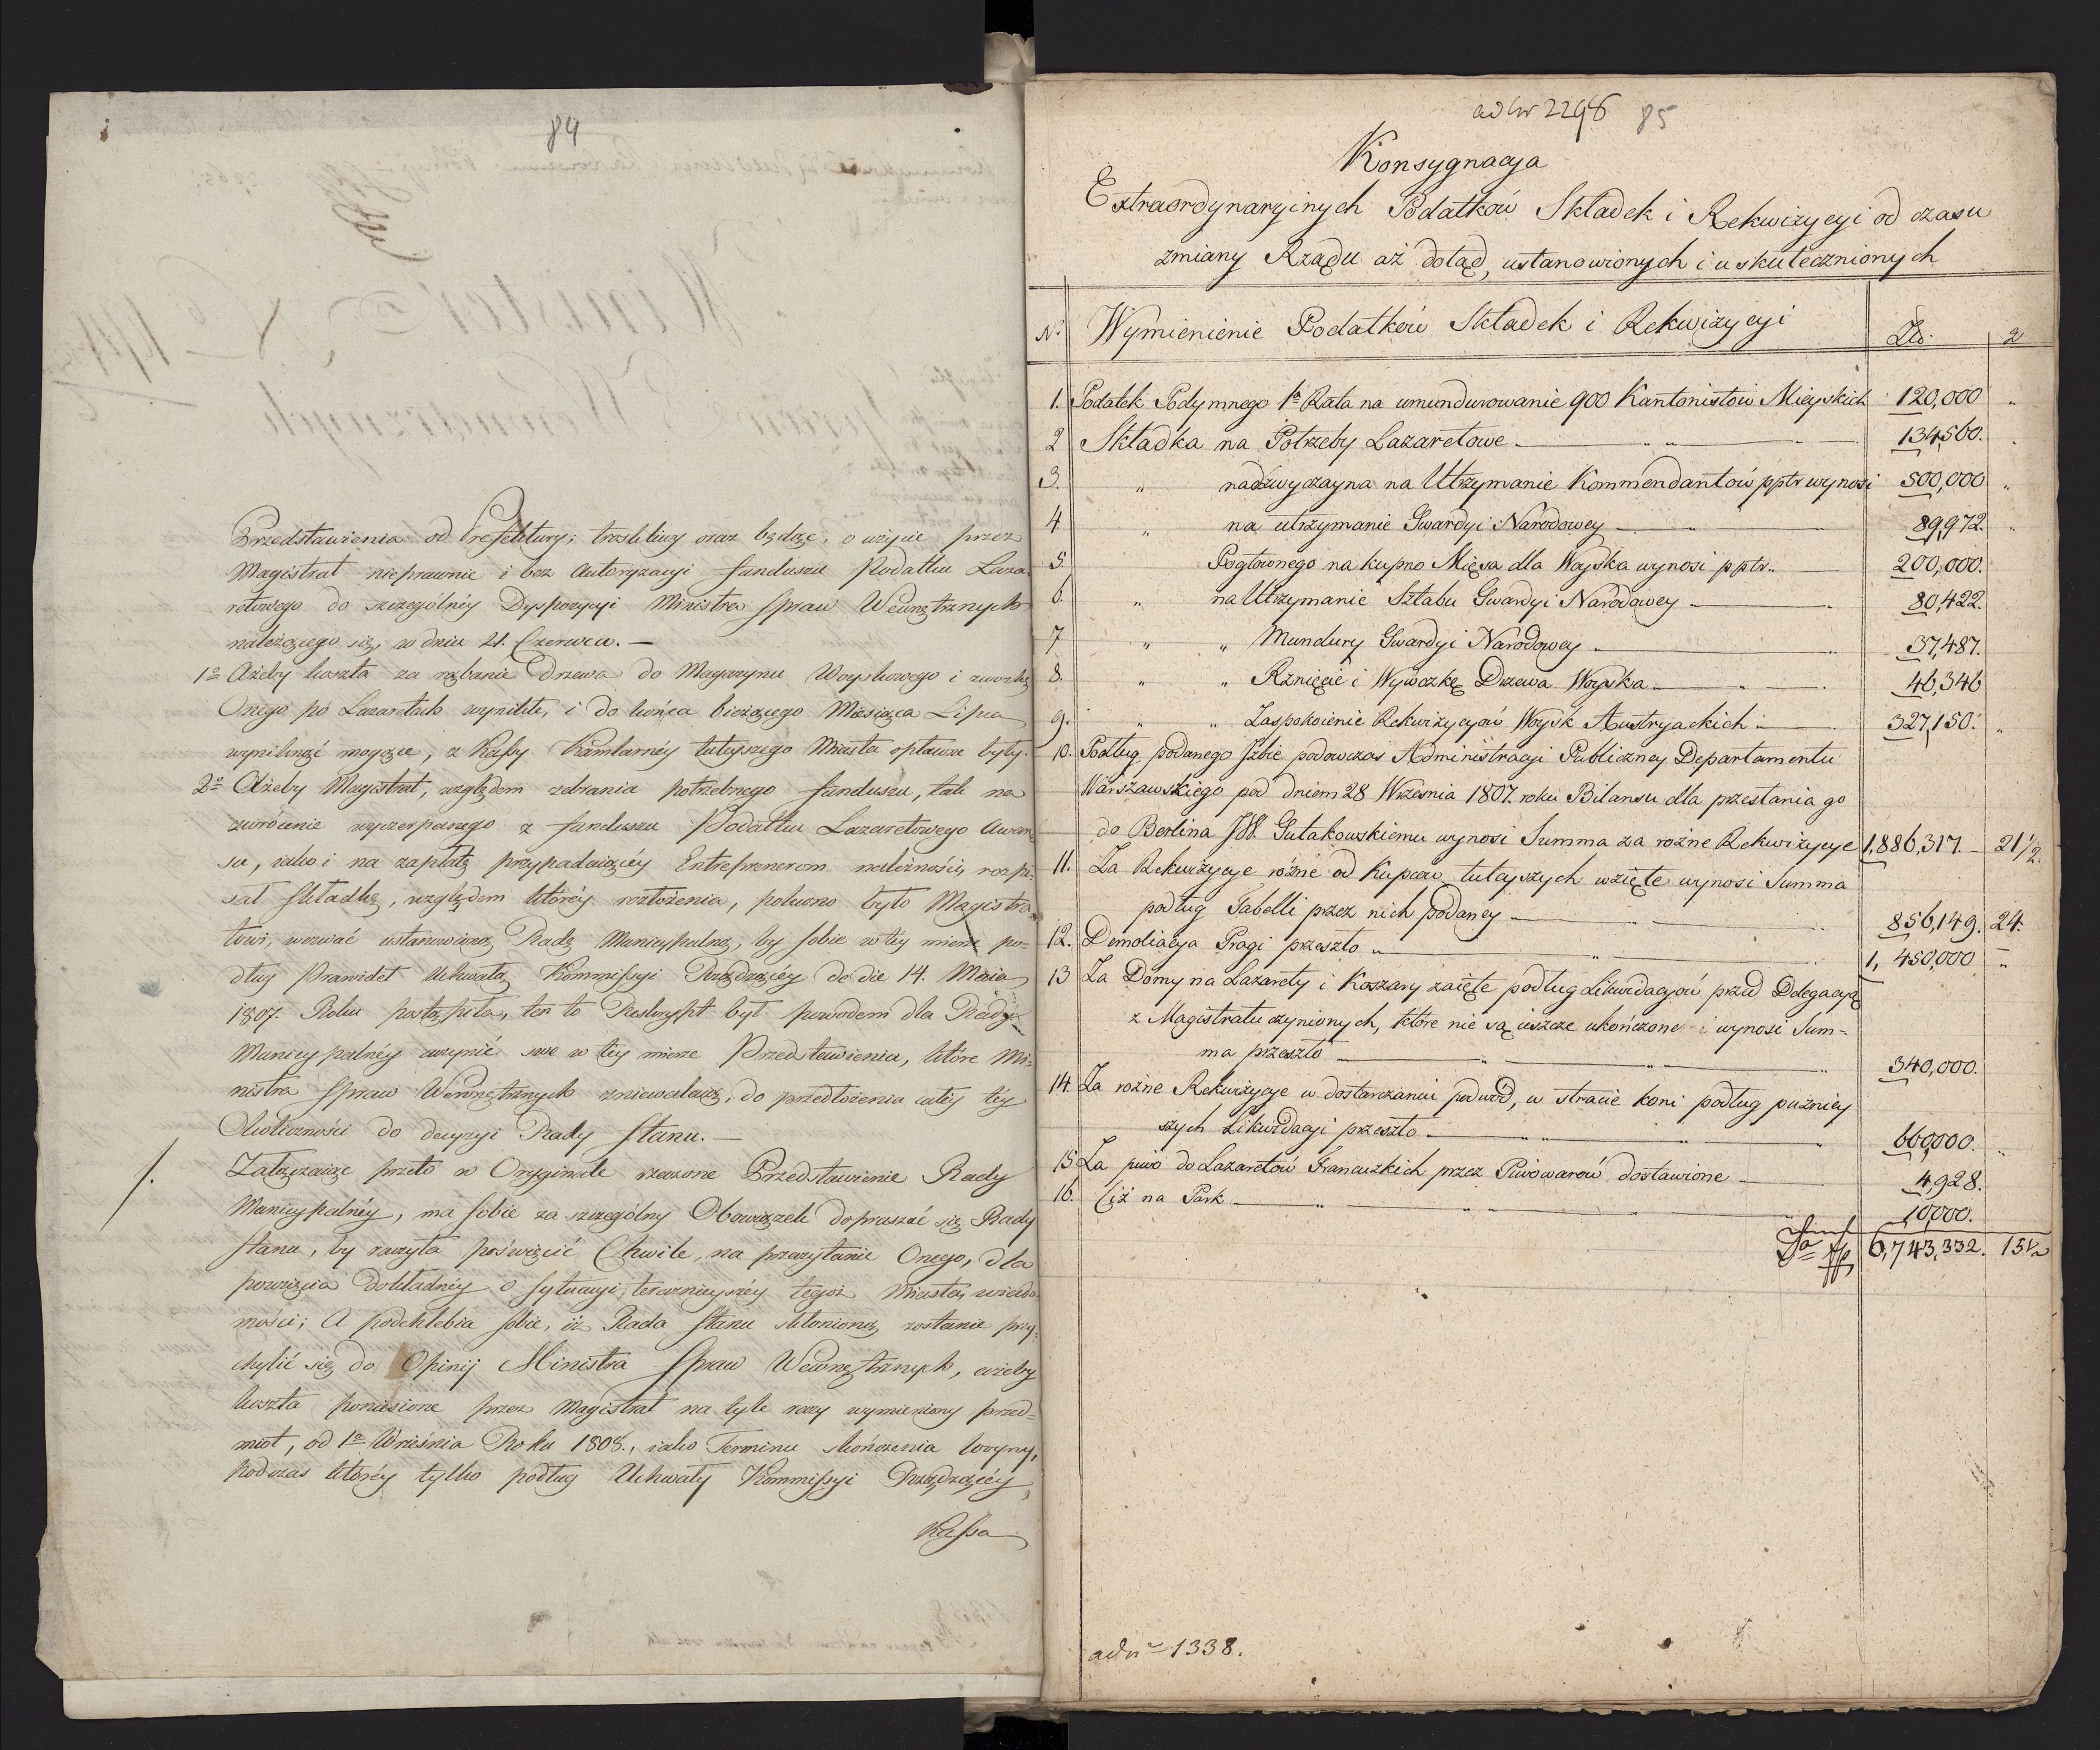 84
Przedstawienia od Prefektury, troskliwy oraz będąc, o użycie przez
Magistrat nieprawnie i bez Autoryzacyi funduszu Podatku Laza-
retowego do szczególnéy Dyspozycyi Ministra Spraw Wewnętrznych
należącego się, w dniu 21. Czerwca. —
1o Ażeby koszta za rąbanie Drzewa do Magazynu Woyskowego i zwózkę
Onego po Lazaretach wynikłe, i do końca bieżącego Miesiąca Lipca
wyniknąć mogące, z Kassy Kamlarnéy tuteyszego Miasta opłacone były.
2o Ażeby Magistrat, względem zebrania potrzebnego funduszu, tak na
zwrócenie wyczerpanego z funduszu Podatku Lazaretowego Awan-
su, iako i na zapłatę przypadaiącéy Entreprenerom należności, rozpi-
sał Składkę, względem któréy rozłożenia, polecono było Magistra-
towi, wezwać ustanowioną Radę Municypalną, by sobie w téy mierze po-
dług Prawideł Uchwałą Kommissyi Rządzącéy de die 14. Maia
1807. Roku postąpiła, ten to Reskrypt był powodem dla Rady
Municypalnéy uczynić swe w téy mierze Przedstawienia, które Mi-
nistra Spraw Wewnętrznych zniewalaią, do przedłożenia całéy téy
Okoliczności do decyzyi Rady Stanu. —
/. Załączaiąc przeto w Oryginale rzeczone Przedstawienie Rady
Municypalnéy, ma sobie za szczególny Obowiązek dopraszać się Rady
Stanu, by raczyła poświęcić Chwile, na przeczytanie Onego, dla
powzięcia dokładnéy o sytuacyi teraznieyszéy tegoż Miasta, wiado-
mości; A podchlebia sobie, iż Rada Stanu skłonioną zostanie przy-
chylić się do Opinij Ministra Spraw Wewnętrznych, ażeby
koszta poniesione przez Magistrat na tyle razy wymieniony przed-
miot, od 1o Września Roku 1808., iako Terminu skończenia Woyny,
podczas któréy tylko podług Uchwały Kommissyi Rządzącéy,
Kassa
ad Nr 2296 85
Konsygnacya
Extraordynaryinych Podatków Składek i Rekwizycyi od czasu
zmiany Rządu aż dotąd, ustanowionych i uskutecznionych
No Wymienienie Podatków Składek i Rekwizycyi Zło. g
1. Podatek Podymnego 1a Rata na umundurowanie 900 Kantonistów Mieyskich 120,000 „
2 Składka na Potrzeby Lazaretowe — 134,560. „
3. „ nadzwyczayna na Utrzymanie Kommendantów pptr wynosi 500,000 „
4 „ na utrzymanie Gwardyi Narodowey — 89,972. „
5. Pogłownego na kupno Mięsa dla Woyska wynosi pptr. — 200,000.
6. „ na Utrzymanie Sztabu Gwardyi Narodowey — 80,422.
7 „ „ Mundury Gwardyi Narodowey — 37,487.
8. „ „ Rżnięcie i Wywozkę Drzewa Woyska — 46,346
9. „ „ Zaspokoienie Rekwizycyów Woysk Austryackich — 327,150. „
10. Podług podanego Izbie podowczas Administracyi Publiczney Departamentu
Warszawskiego pod dniem 28 Wrzesnia 1807. roku Bilansu dla przesłania go
do Berlina JW. Gutakowskiemu wynosi Summa za rożne Rekwizycye 1,886,317. — 21 1/2.
11. Za Rekwizycye różne od Kupców tuteyszych wzięte wynosi Summa
podług Tabelli przez nich podaney — 856,149. 24.
12. Demoliacya Pragi przeszło — 1,450,000 „
13 Za Domy na Lazarety i Koszary zaięte podług Likwidacyów przed Delegacyą
z Magistratu czynionych, które nie są ieszcze ukończone i wynosi Sum-
ma przeszło — 340,000.
14. Za rożne Rekwizycye w dostarczaniu podwód, w stracie koni podług puzniey
szych Likwidacyi przeszło — 660,000. „
15 Za piwo do Lazaretów Francuzkich przez Piwowarów dostawione — 4,928.
16. Ciż na Park — 10,000.
Summa 6,743,332. 15 1/2
ad nr 1338.